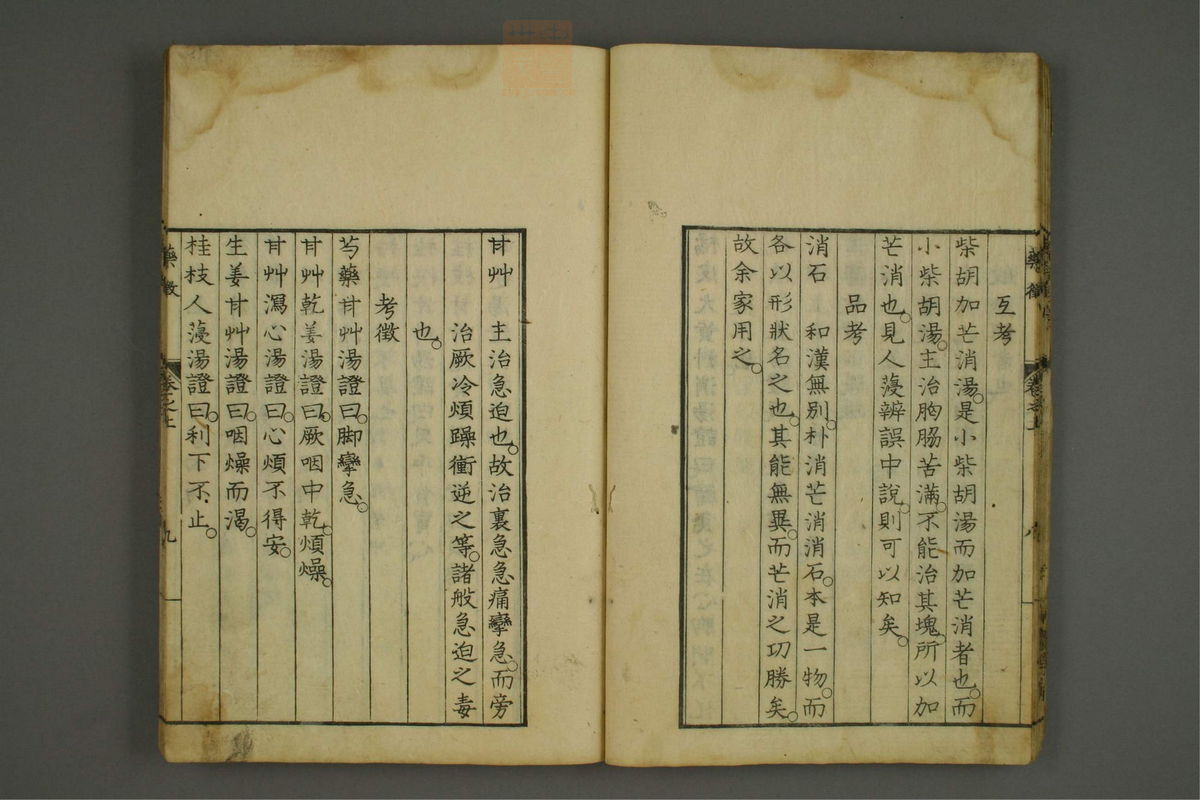 互考
柴胡加芒消湯。是小柴胡湯而加芒消者也。而
小柴胡湯。主治胸脇苦滿。不能治其塊。所以加
芒消也。見人蓡辨誤中說。則可以知矣。
品考
消石　和漢無別。朴消芒消消石。本是一物。而
各以形狀名之也。其能無異。而芒消之功勝矣。
故余家用之。
甘艸　主治急迫也。故治裏急急痛攣急。而旁
治厥冷煩躁衝逆之等。諸般急迫之毒
也。
考徵
芍藥甘艸湯證曰。脚攣急。
甘艸乾姜湯證曰。厥咽中乾。煩燥。
甘艸瀉心湯證曰。心煩不得安。
生姜甘艸湯證曰。咽燥而渴。
桂枝人蓡湯證曰。利下不止。
藥徵
卷之上
九